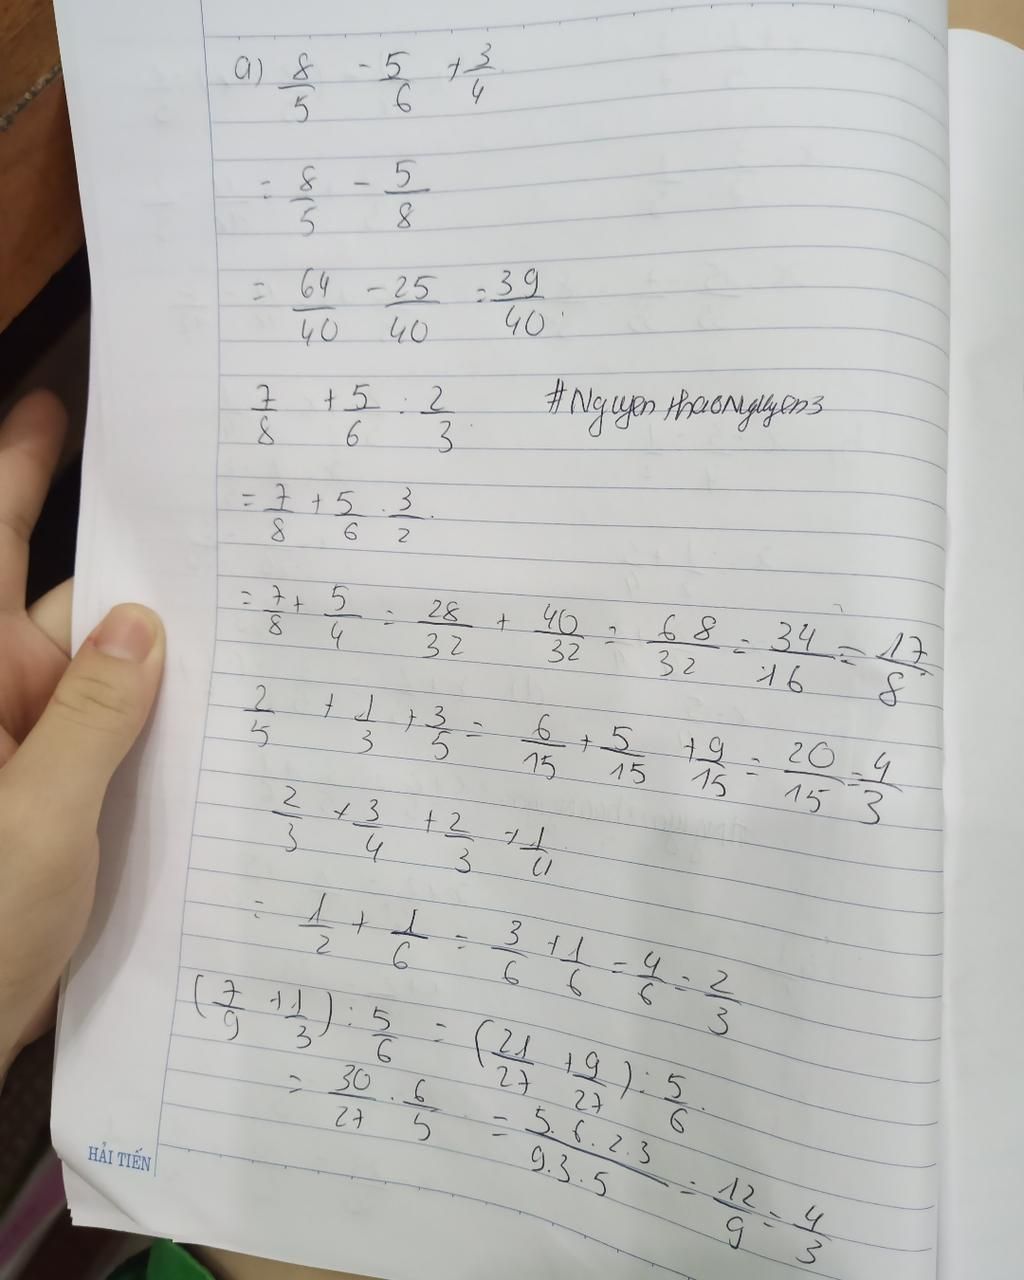 a) 8/5 - 5/6 + 3/4
= 8/5 - 5/8
= 64/40 - 25/40 = 39/40
7/8 + 5/6 : 2/3 #NguyenthaoNguyen3
= 7/8 + 5/6 . 3/2
= 7/8 + 5/4 = 28/32 + 40/32 = 68/32 = 34/16 = 17/8
2/5 + 1/3 + 3/5 = 6/15 + 5/15 + 9/15 = 20/15 = 4/3
2/3 × 3/4 + 2/3 × 1/4
= 1/2 + 1/6 = 3/6 + 1/6 = 4/6 = 2/3
(7/9 + 1/3) : 5/6 = (21/27 + 9/27) : 5/6
= 30/27 . 6/5 = 5.6.2.3/9.3.5 = 12/9 = 4/3
HẢI TIẾN